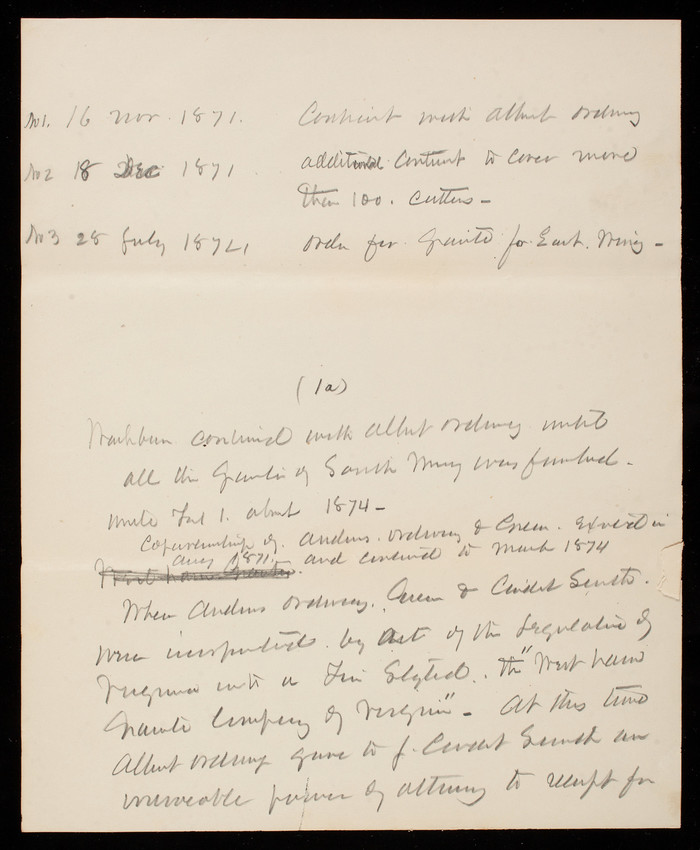 No 1. 16 Nov. 1871. Contract with Albert Ordway
No 2 18 Dec 1871 additional Contract to cover more
than 100. cutters -
No 3 28 July 1872, order for Granite for East. Wing -
(1a)
continued with Albert Ordway until
all the Granite of South Wing was furnished -
until 1. about 1874 -
Copartnership of. Andrus. Ordway & Green. Existed in
Aug 1871, and continued to March 1874
When Andrus Ordway. Green & Smith.
were incorporated. by Act of the Legislature of
Virginia into a Styled. the "West ham
Granite Company of Virginia" - At this time
Albert Ordway gave to J. Smith an
irrevocable power of attorney to receipt for